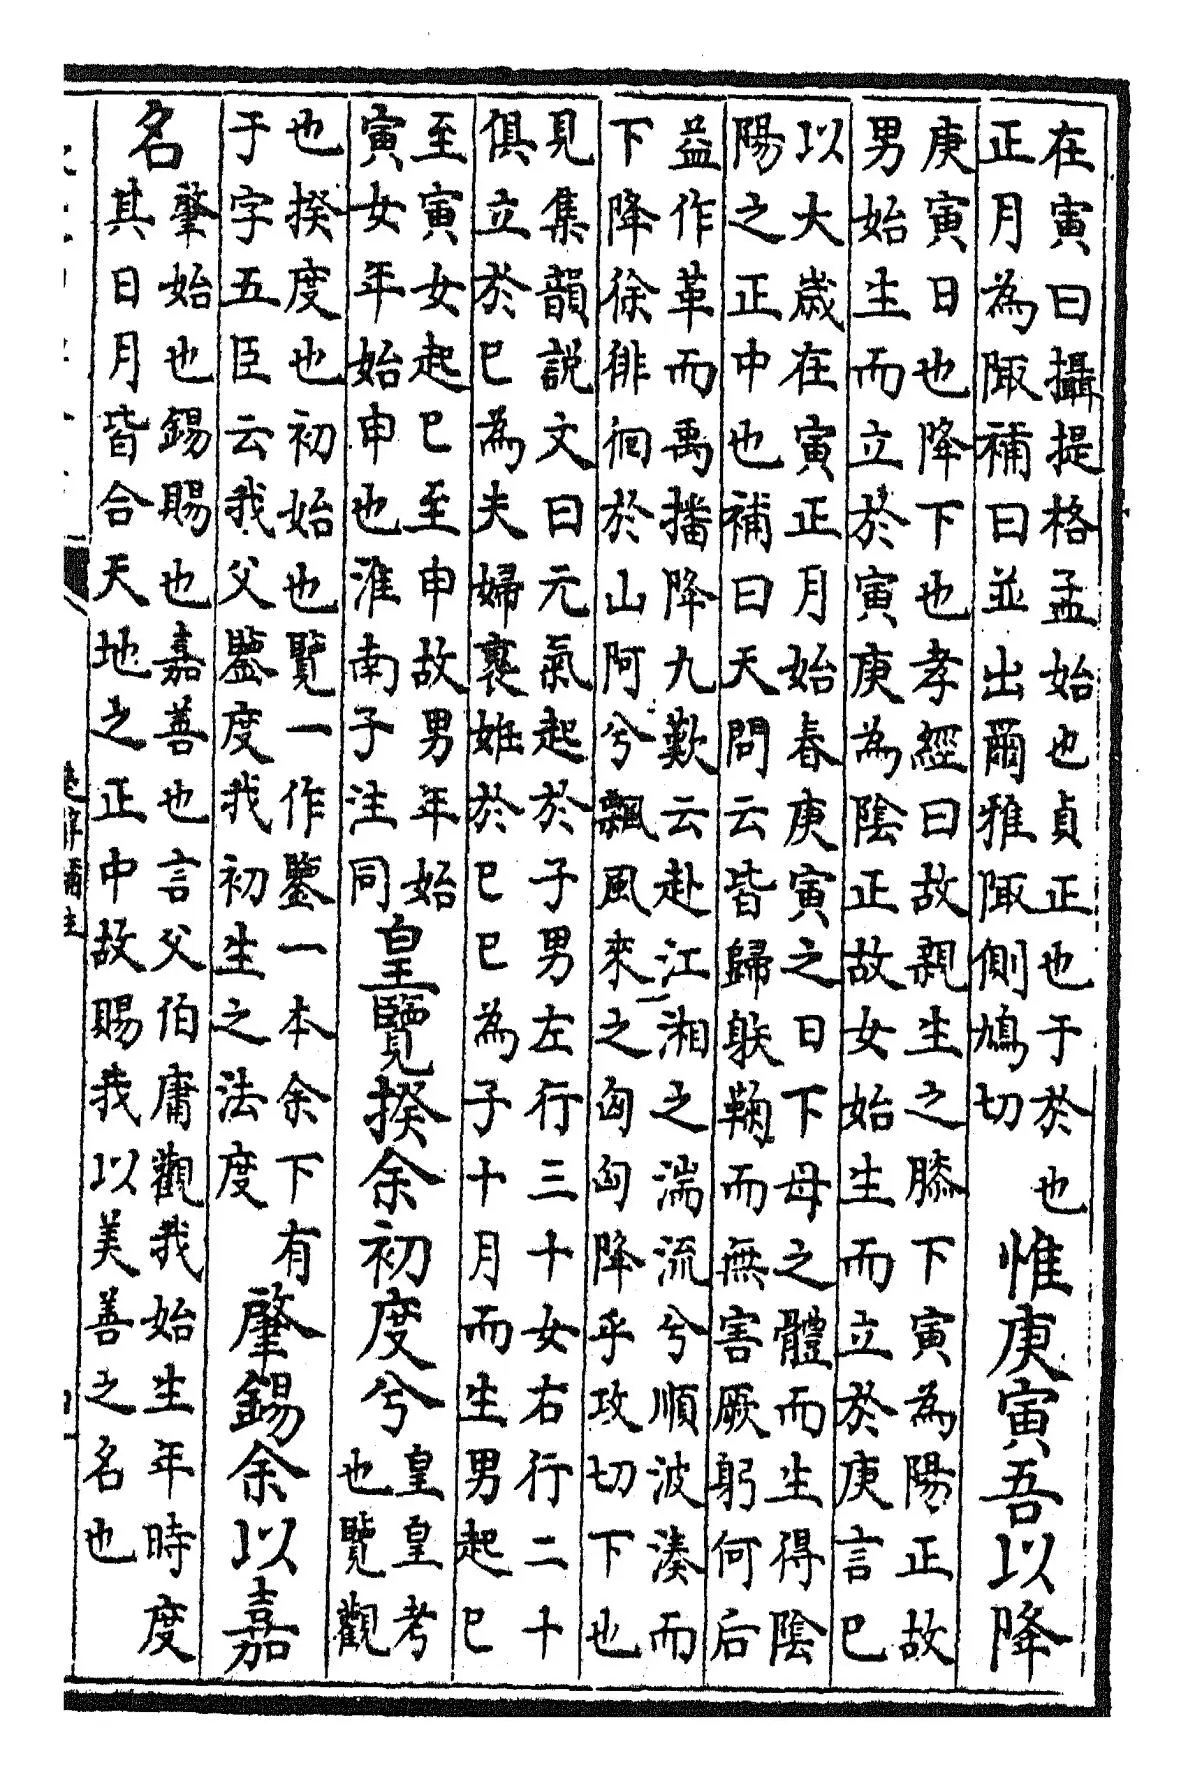 在寅曰攝提格孟始也貞正也于於也
正月為陬補曰並出爾雅陬側鳩切
惟庚寅吾以降
庚寅日也降下也孝經曰故親生之膝下寅為陽正故
男始生而立於寅庚為陰正故女始生而立於庚言巳
以大歲在寅正月始春庚寅之日下母之體而生得陰
陽之正中也補曰天問云皆歸䠶鞠而無害厥躬何后
益作革而禹播降九歎云赴江湘之湍流兮順波湊而
下降徐徘徊於山阿兮飄風來之匈匈降乎攻切下也
見集韻說文曰元氣起於子男左行三十女右行二十
俱立於巳為夫婦裹妊於巳巳為子十月而生男起巳
至寅女起巳至申故男年始
寅女年始申也淮南子注同
皇覽揆余初度兮
皇皇考
也覽觀
也揆度也初始也覽一作鑒一本余下有
于字五臣云我父鑒度我初生之法度
肇錫余以嘉
名
肇始也錫賜也嘉善也言父伯庸觀我始生年時度
其日月皆合天地之正中故賜我以美善之名也